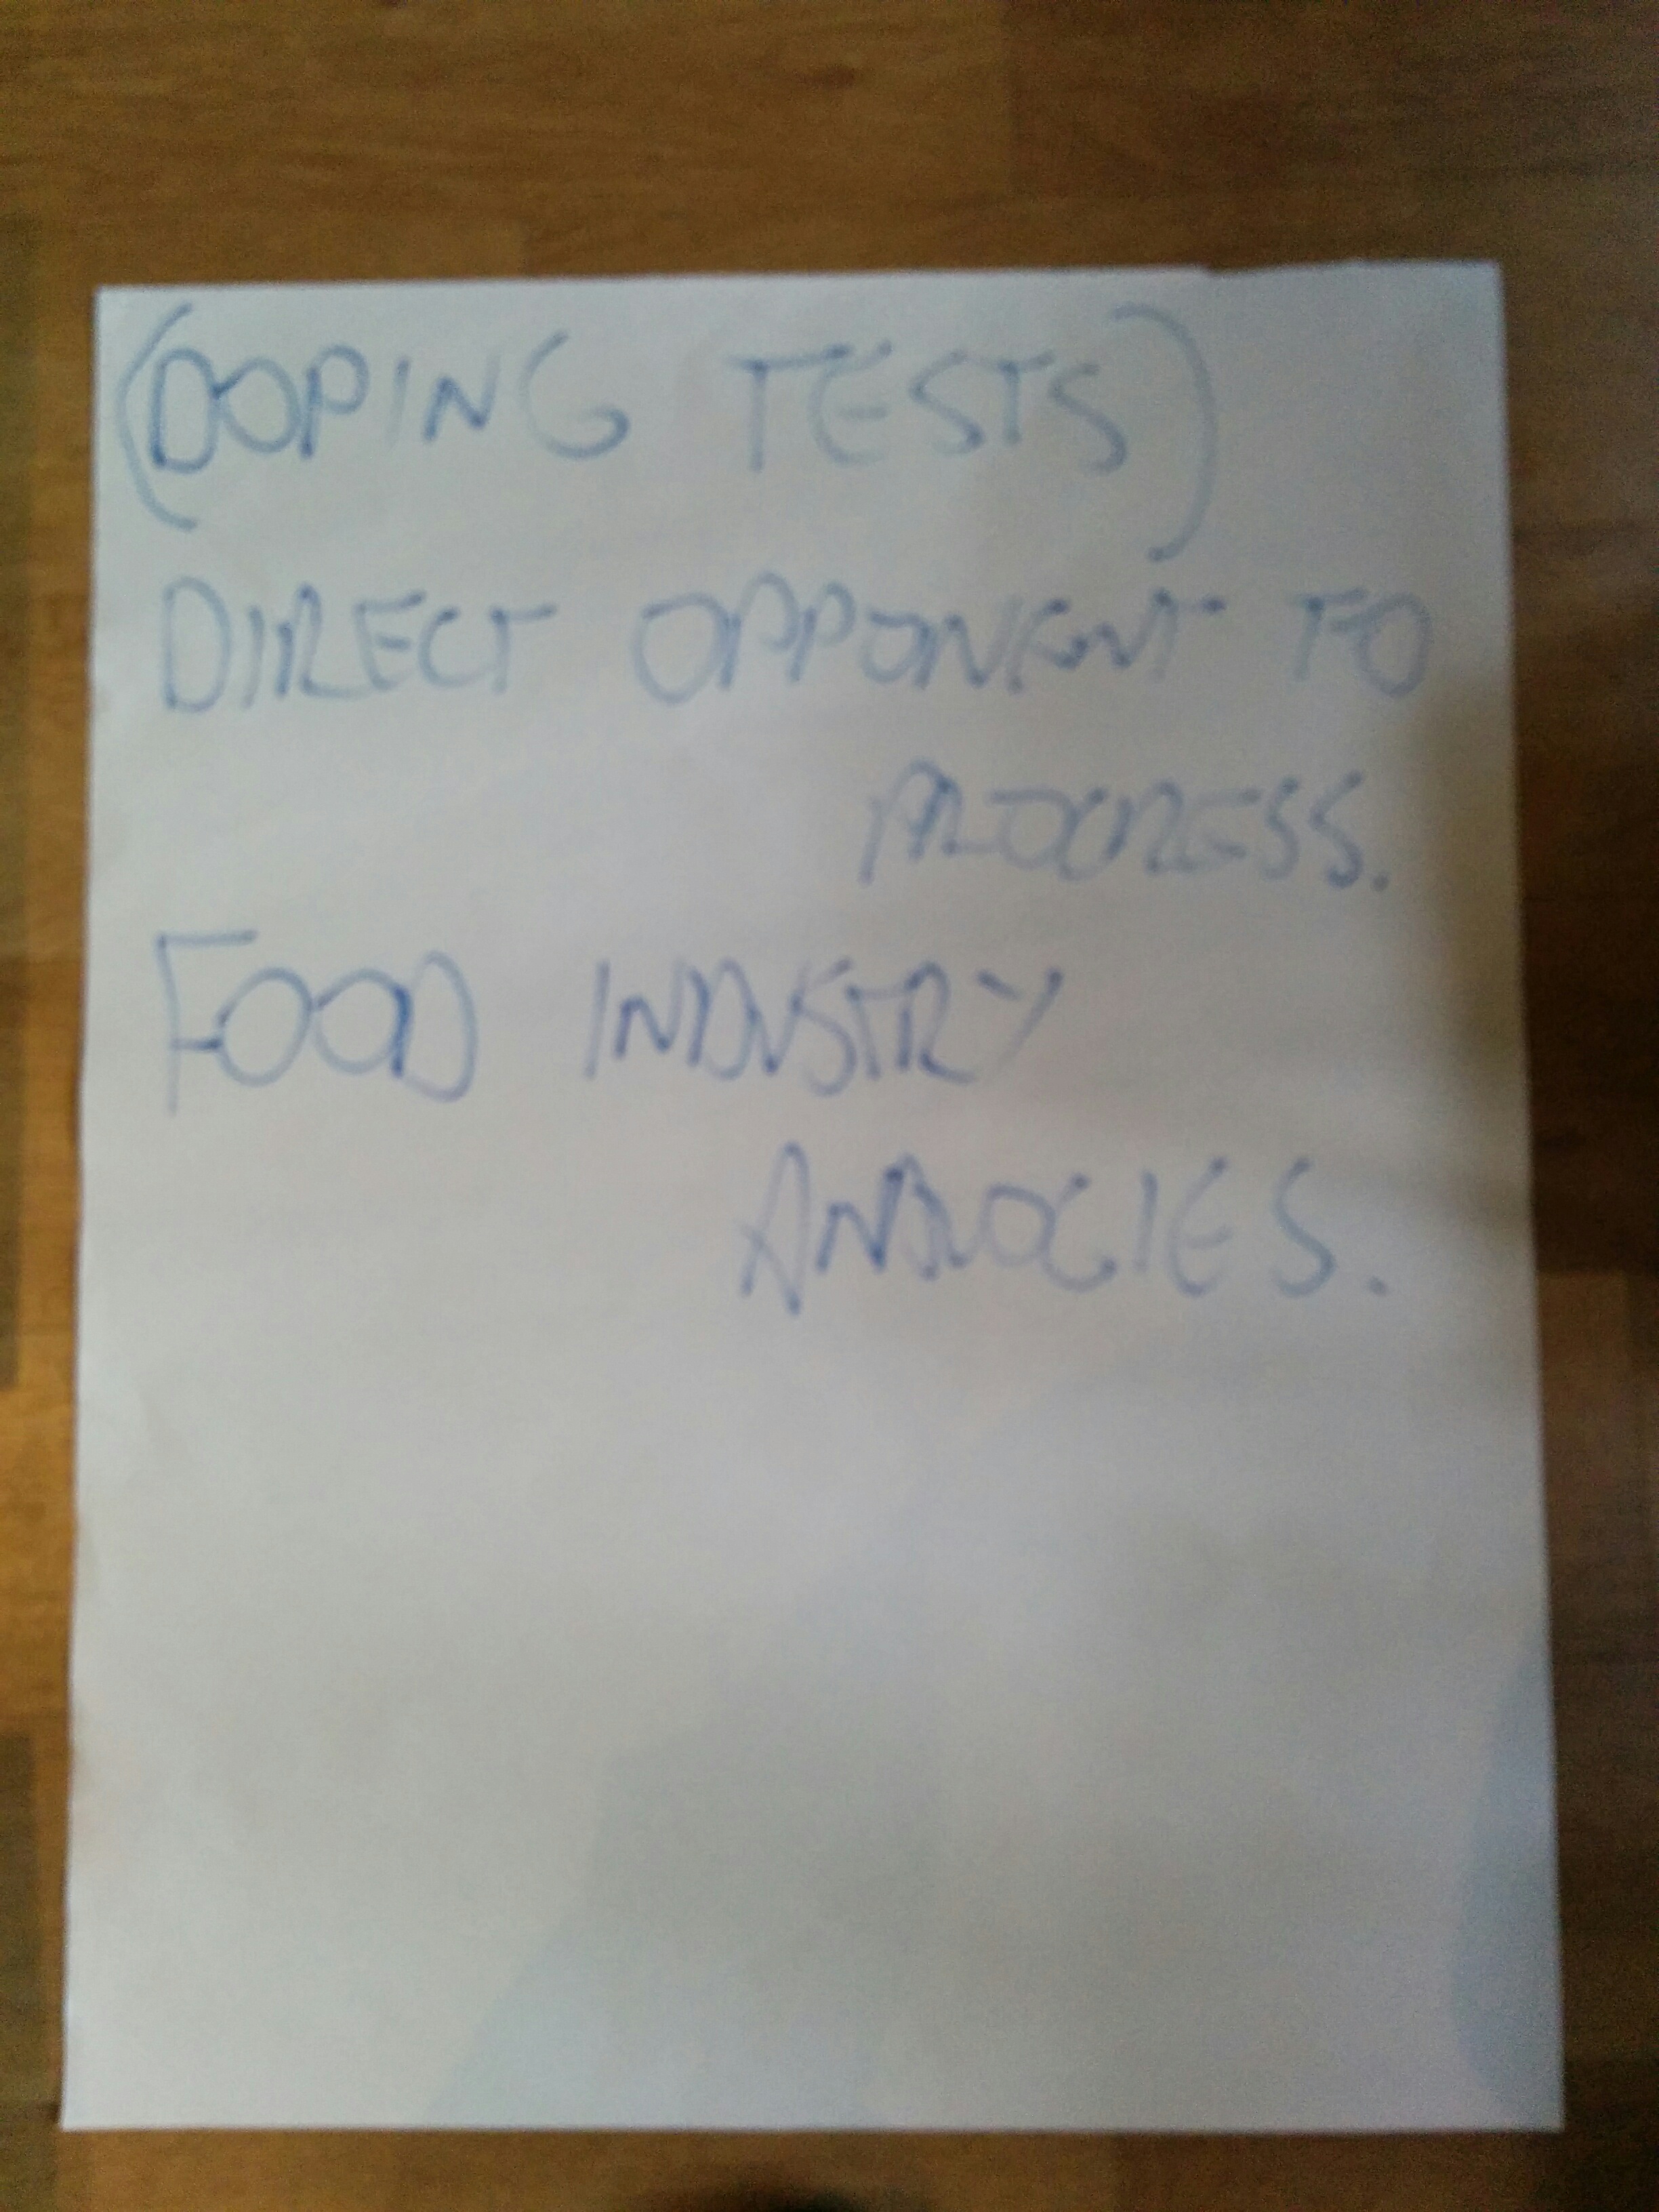 (DOPING TESTS)
DIRECT OPPONENT TO
PROGRESS.
FOOD INDUSTRY
ANALOGIES.